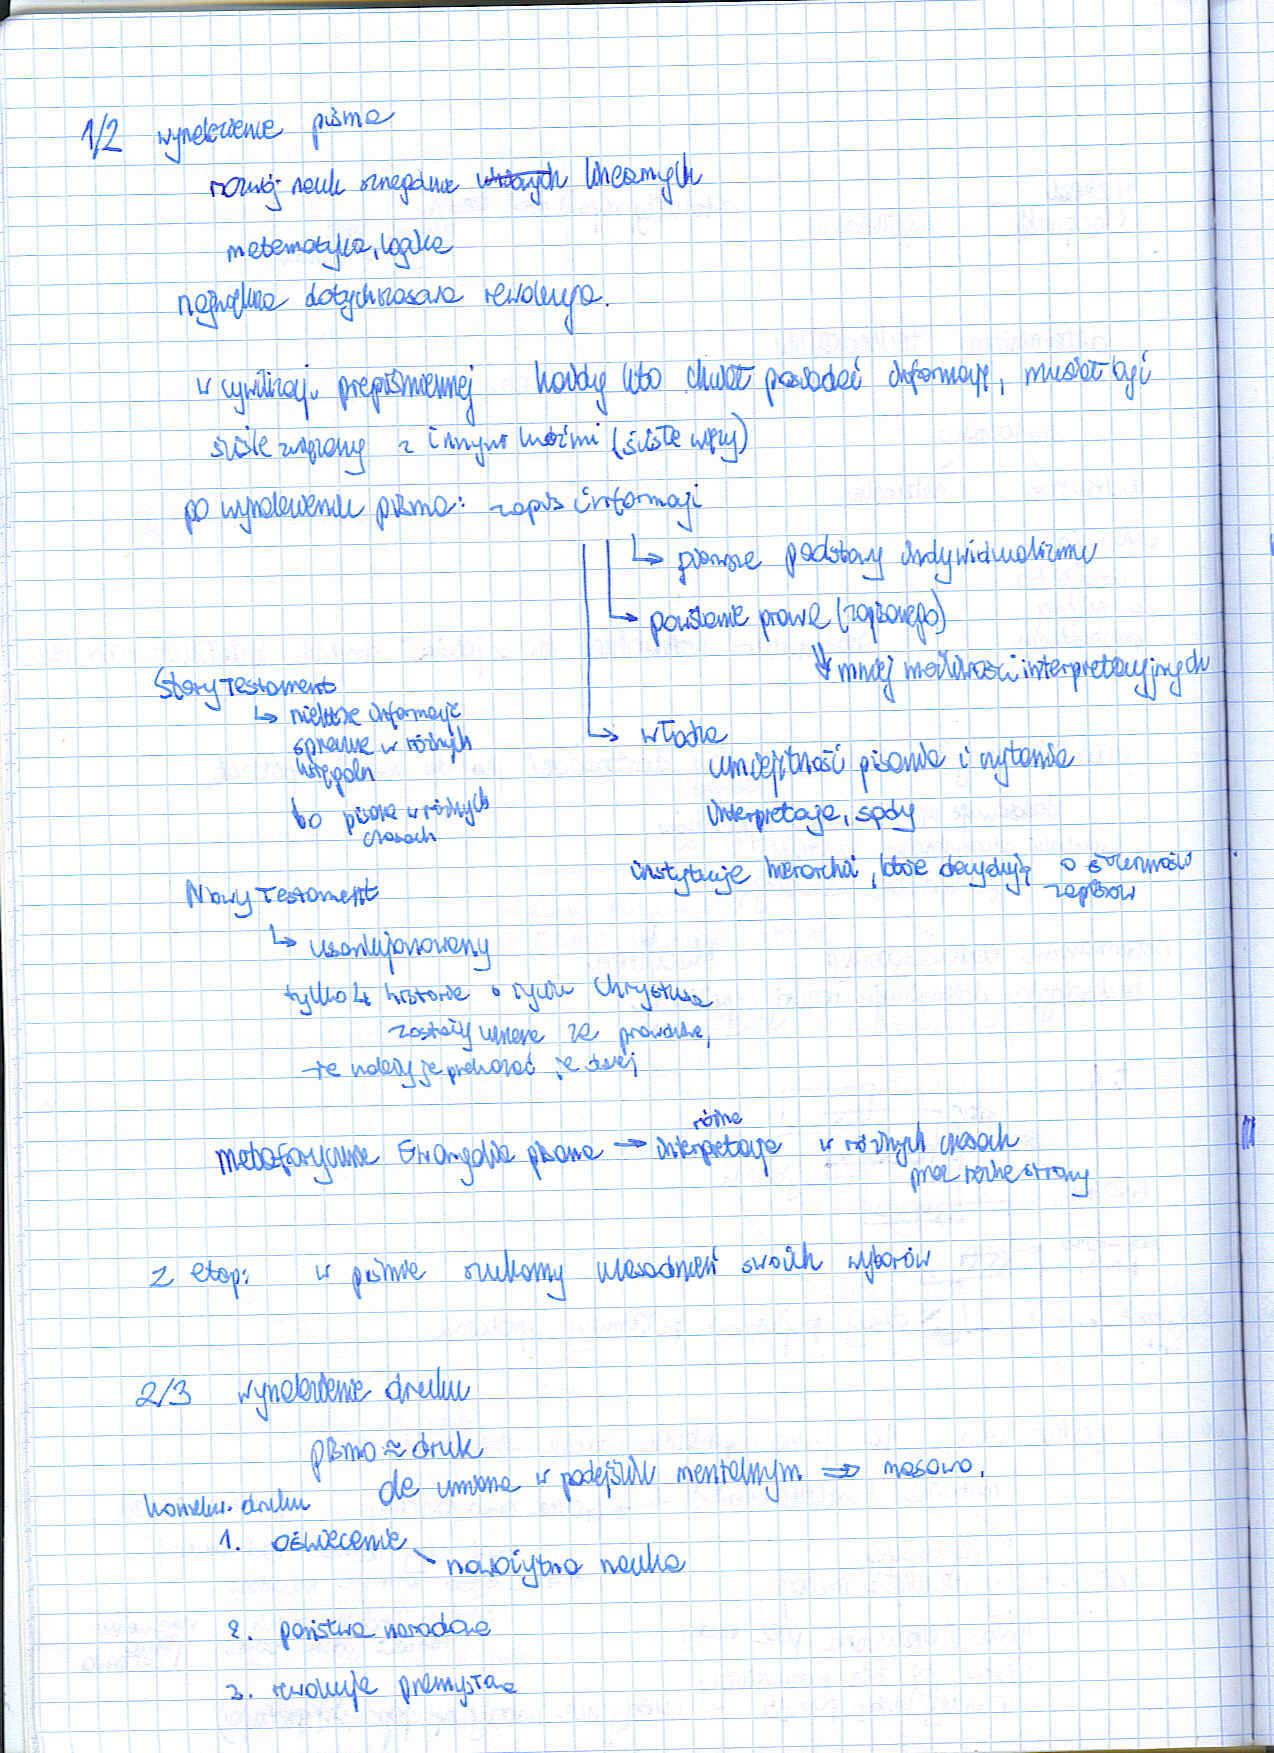 1/2 wynalezienie pisma
rozwój nauk szczególnie linearnych
matematyka, logika
największa dotychczasowa rewolucja.
w cywilizacji prepiśmiennej każdy kto chciał posiadać informację, musiał być
ściśle związany z innymi ludźmi (ścisłe więzy)
po wynalezieniu pisma: zapis informacji
↳ pierwsze podstawy indywidualizmu
↳ powstanie prawa (zapisanego)
↓ mniej możliwości interpretacyjnych
↳ władza
umiejętność pisania i czytania
interpretacje, sądy
instytucje hierarchii, które decydują o
zapisów
Stary Testament
↳ niektóre informacje
sprzeczne w różnych
księgach
bo pisane w różnych
czasach
Nowy Testament
↳ usankcjonowany
tylko 4 historie o życiu Chrystusa
zostały uznane za prawdziwe,
że należy je przekazać dalej
metaforycznie Ewangelia pisana → różne interpretacje w różnych czasach
przez różne strony
2 etap: w piśmie szukamy uzasadnień swoich wyborów
2/3 wynalezienie druku
pismo ≈ druk
ale zmiana w podejściu mentalnym ⇒ masowo.
konsekw. druku
1. oświecenie
nowożytna nauka
2. państwa narodowe
3. rewolucja przemysłowa